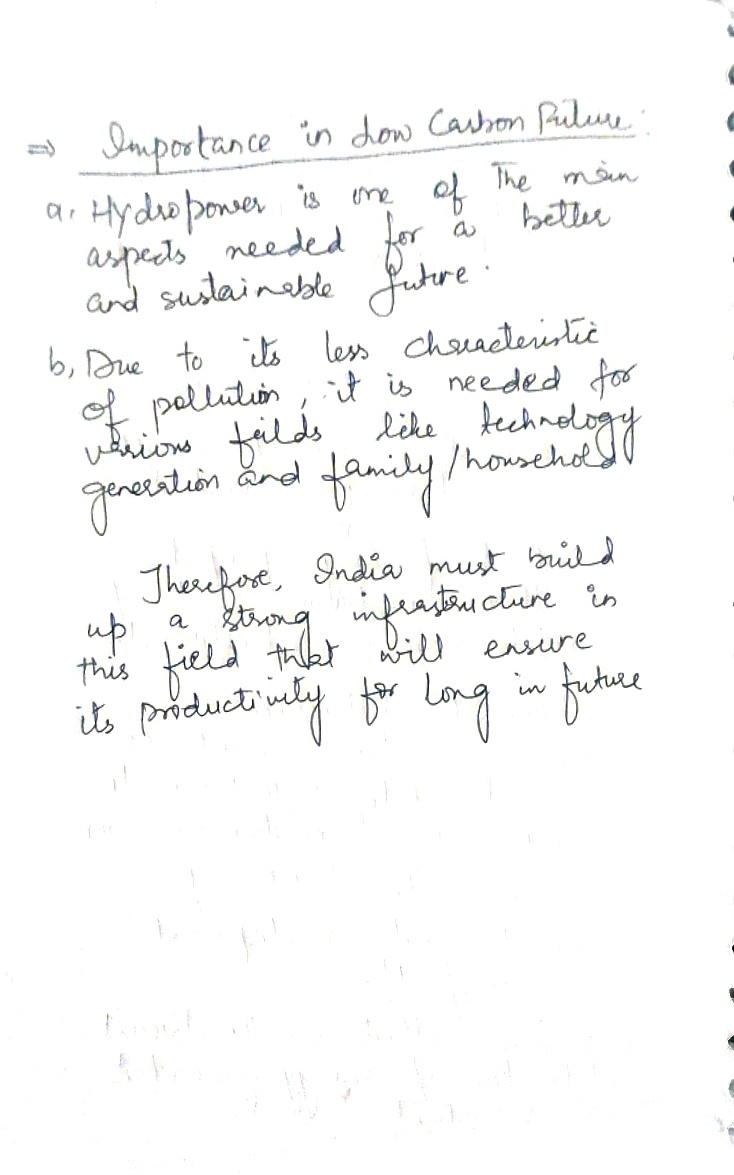 ⇒ Importance in Low Carbon Future:
a. Hydropower is one of the main
aspects needed for a better
and sustainable future.
b, Due to its less characteristic
of pollution, it is needed for
various feilds like technology
generation and family / household
Therefore, India must build
up a strong infrastructure in
this field that will ensure
its productivity for long in future